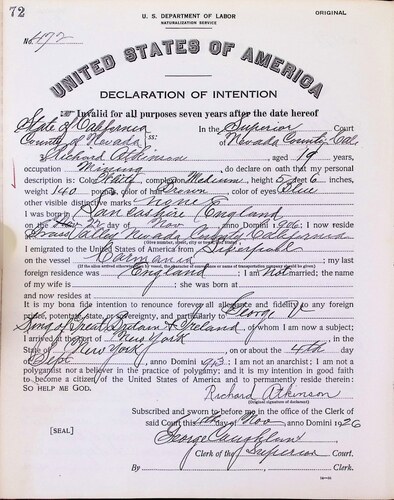 72
U. S. DEPARTMENT OF LABOR
NATURALIZATION SERVICE
ORIGINAL
No. 472
UNITED STATES OF AMERICA
DECLARATION OF INTENTION
Invalid for all purposes seven years after the date hereof
State of California In the Superior Court
County of Nevada ss: of Nevada County, Cal.
I, Richard Atkinson, aged 19 years,
occupation Mining, do declare on oath that my personal
description is: Color White, complexion Medium, height 5 feet 6 inches,
weight 140 pounds, color of hair Brown, color of eyes Blue
other visible distinctive marks none
I was born in Lancashire England
on the day of Nov, anno Domini 1906; I now reside
at Grass Valley Nevada County California
(Give number, street, city or town, and state.)
I emigrated to the United States of America from Liverpool
on the vessel Carmania; my last
(If the alien arrived otherwise than by vessel, the character of conveyance or name of transportation company should be given.)
foreign residence was England; I am not married; the name
of my wife is; she was born at
and now resides at
It is my bona fide intention to renounce forever all allegiance and fidelity to any foreign
prince, potentate, state, or sovereignty, and particularly to George V
King of Great Britain & Ireland, of whom I am now a subject;
I arrived at the port of New York, in the
State of New York, on or about the 4th day
of Sept, anno Domini; I am not an anarchist; I am not a
polygamist nor a believer in the practice of polygamy; and it is my intention in good faith
to become a citizen of the United States of America and to permanently reside therein:
SO HELP ME GOD.
Richard Atkinson
(Original signature of declarant.)
Subscribed and sworn to before me in the office of the Clerk of
[SEAL] said Court this day of Nov, anno Domini 1926
George Caughlin
Clerk of the Superior Court.
By, Clerk.